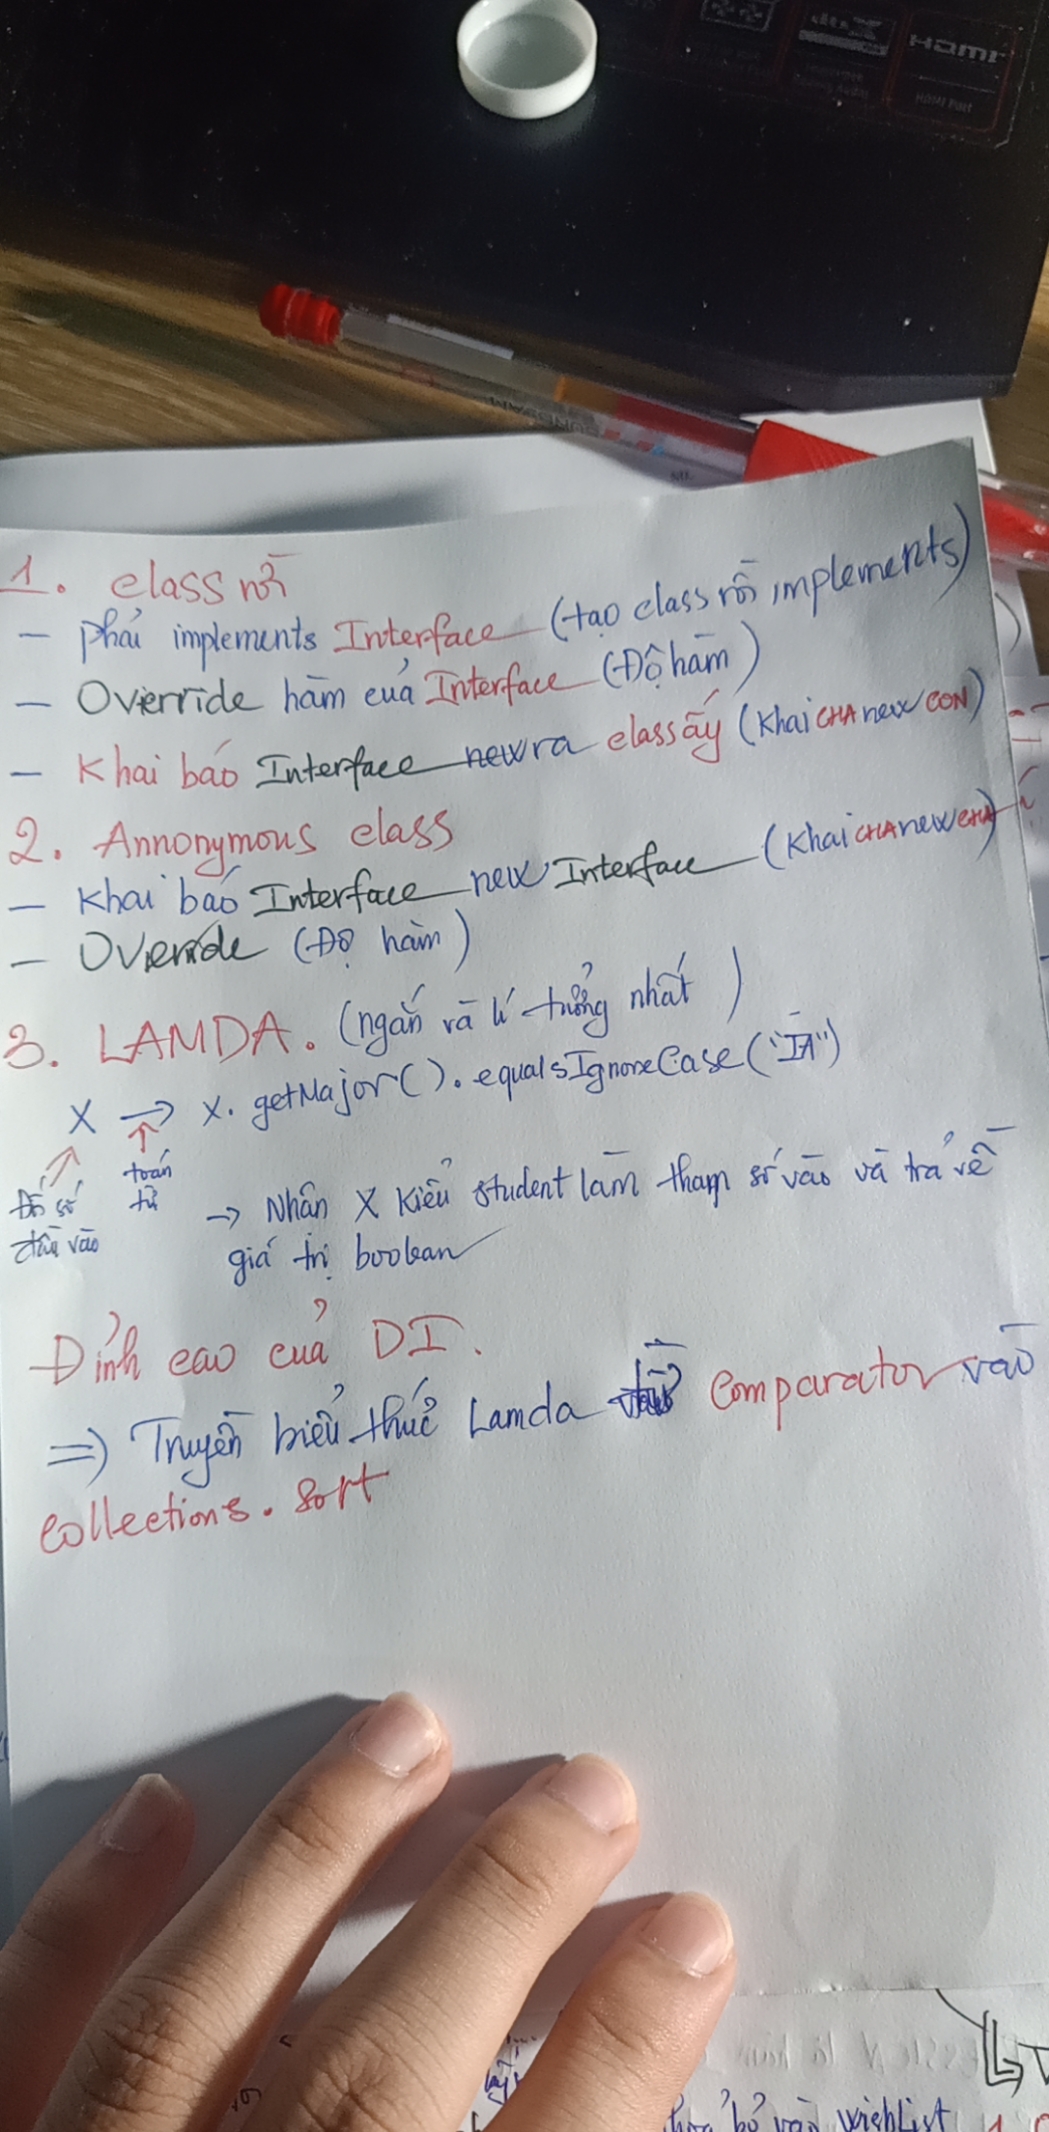 HDMI
HDMI Port
1. class rời
- phải implements Interface (tạo class rồi implements)
- Override hàm của Interface (Độ hàm)
- Khai báo Interface new ra class ấy (Khai CHA new CON)
2. Annonymous class
- Khai báo Interface new Interface (Khai CHA new CHA)
- Override (Độ hàm)
3. LAMDA. (ngắn và lí tưởng nhất)
X -> X. getMajor(). equalsIgnoreCase("IA")
toán
tử
đầu vào
-> Nhận X kiểu student làm tham số vào và trả về
giá trị boolean
Đỉnh cao của DI.
=> Truyền biểu thức Lamda Comparator vào
collections. sort
bỏ vào wishList